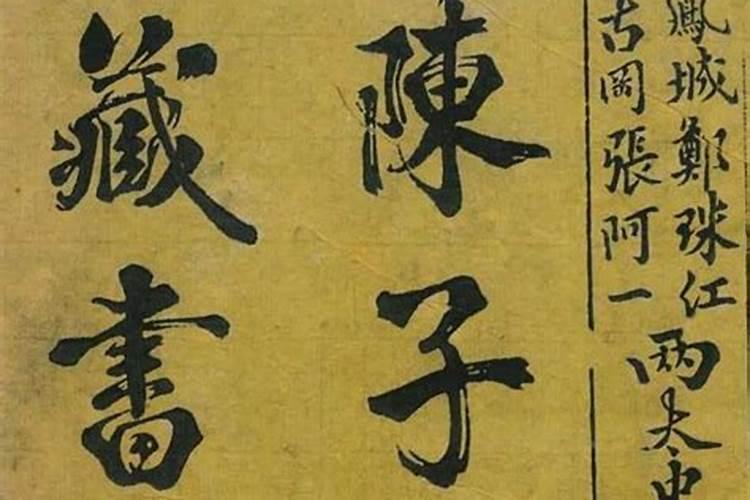 鳳城鄭珠江
古岡張阿一
兩大
陳子
藏書